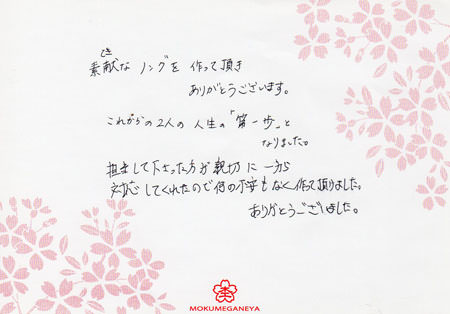 すてき
素献な リングを 作って頂き
ありがとうございます。
これからの2人の 人生の「第一歩」と
なりました。
担当して下さった方が親切に 一から
対応してくれたので何の不安もなく作って頂けました。
ありがとうございました。
MOKUMEGANEYA